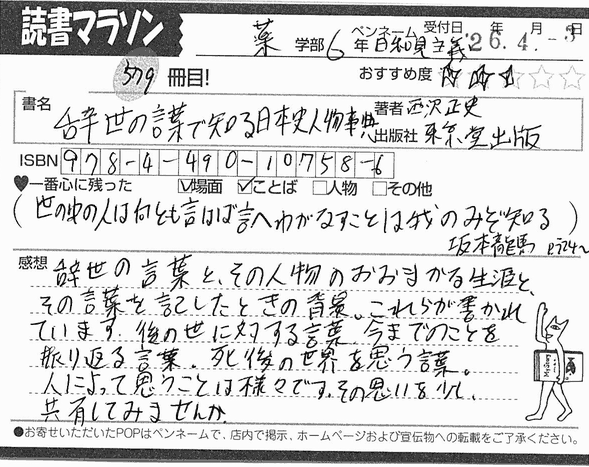 読書マラソン
薬 学部 6 年 ペンネーム 日和見主義 受付日 '26.4.-3 年 月 日
579 冊目! おすすめ度
書名 辞世の言葉で知る日本史人物事典
著者 西沢正史
出版社 東京堂出版
ISBN 978-4-490-10758-6
♥一番心に残った ☑場面 ☑ことば □人物 □その他
(世の中の人は何とも言はば言へわがなすことは我のみぞ知る)
坂本龍馬
感想 辞世の言葉と、その人物のおおまかな生涯と、
その言葉を記したときの背景。これらが書かれ
ています。後の世に対する言葉、今までのことを
振り返る言葉。死後の世界を思う言葉。
人によって思うことは様々です。その思いを少し、
共有してみませんか。
●お寄せいただいたPOPはペンネームで、店内で掲示、ホームページおよび宣伝物への転載をご了承ください。